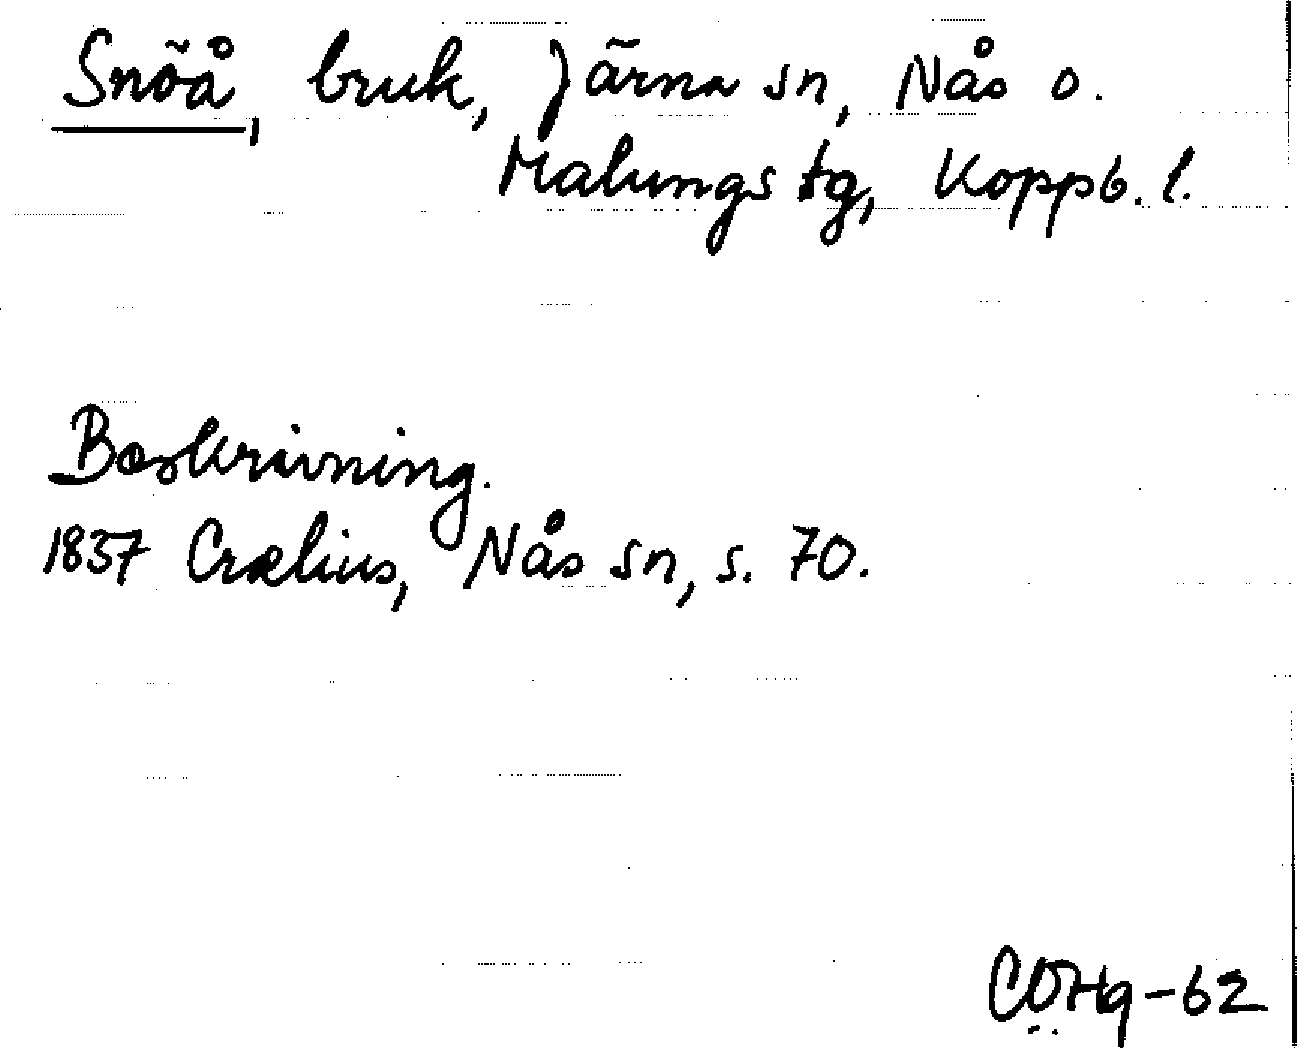 Snöå, bruk, Järna sn, Nås o.
Malungs tg, Koppb. l.
Beskrivning.
1837 Crælius, Nås sn, s. 70.
CÖHq-62